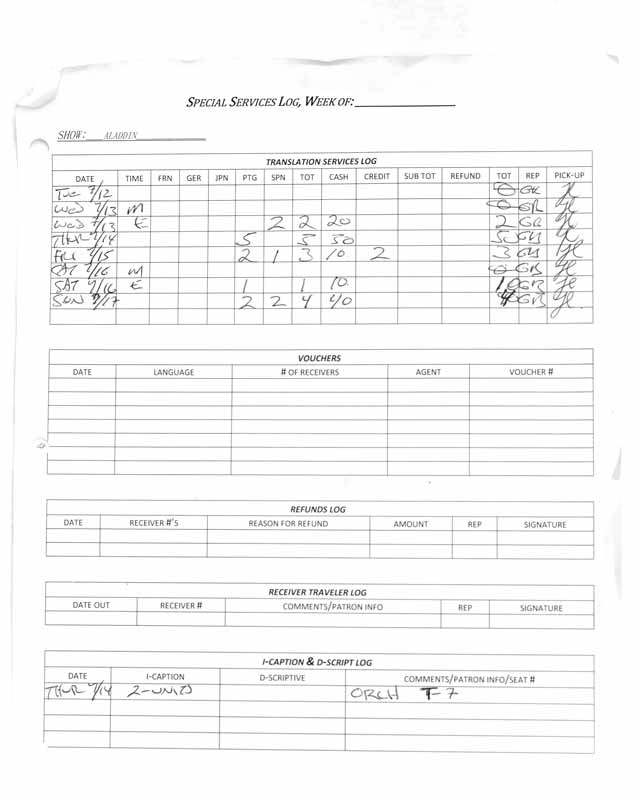 SPECIAL SERVICES LOG, WEEK OF:
SHOW: ALADDIN
TRANSLATION SERVICES LOG
DATE TIME FRN GER JPN PTG SPN TOT CASH CREDIT SUB TOT REFUND TOT REP PICK-UP
TUE 7/12 0 GR
WED 7/13 M 0 GR
WED 7/13 E 2 2 20 2 GR
THUR 7/14 5 5 50 5 GR
FRI 7/15 2 1 3 10 2 3 GR
SAT 7/16 M 0 GR
SAT 7/16 E 1 1 10 1 GR
SUN 7/17 2 2 4 40 4 GR
VOUCHERS
DATE LANGUAGE # OF RECEIVERS AGENT VOUCHER #
REFUNDS LOG
DATE RECEIVER #'S REASON FOR REFUND AMOUNT REP SIGNATURE
RECEIVER TRAVELER LOG
DATE OUT RECEIVER # COMMENTS/PATRON INFO REP SIGNATURE
I-CAPTION & D-SCRIPT LOG
DATE I-CAPTION D-SCRIPTIVE COMMENTS/PATRON INFO/SEAT #
THUR 7/14 2-UNITS ORCH T-7